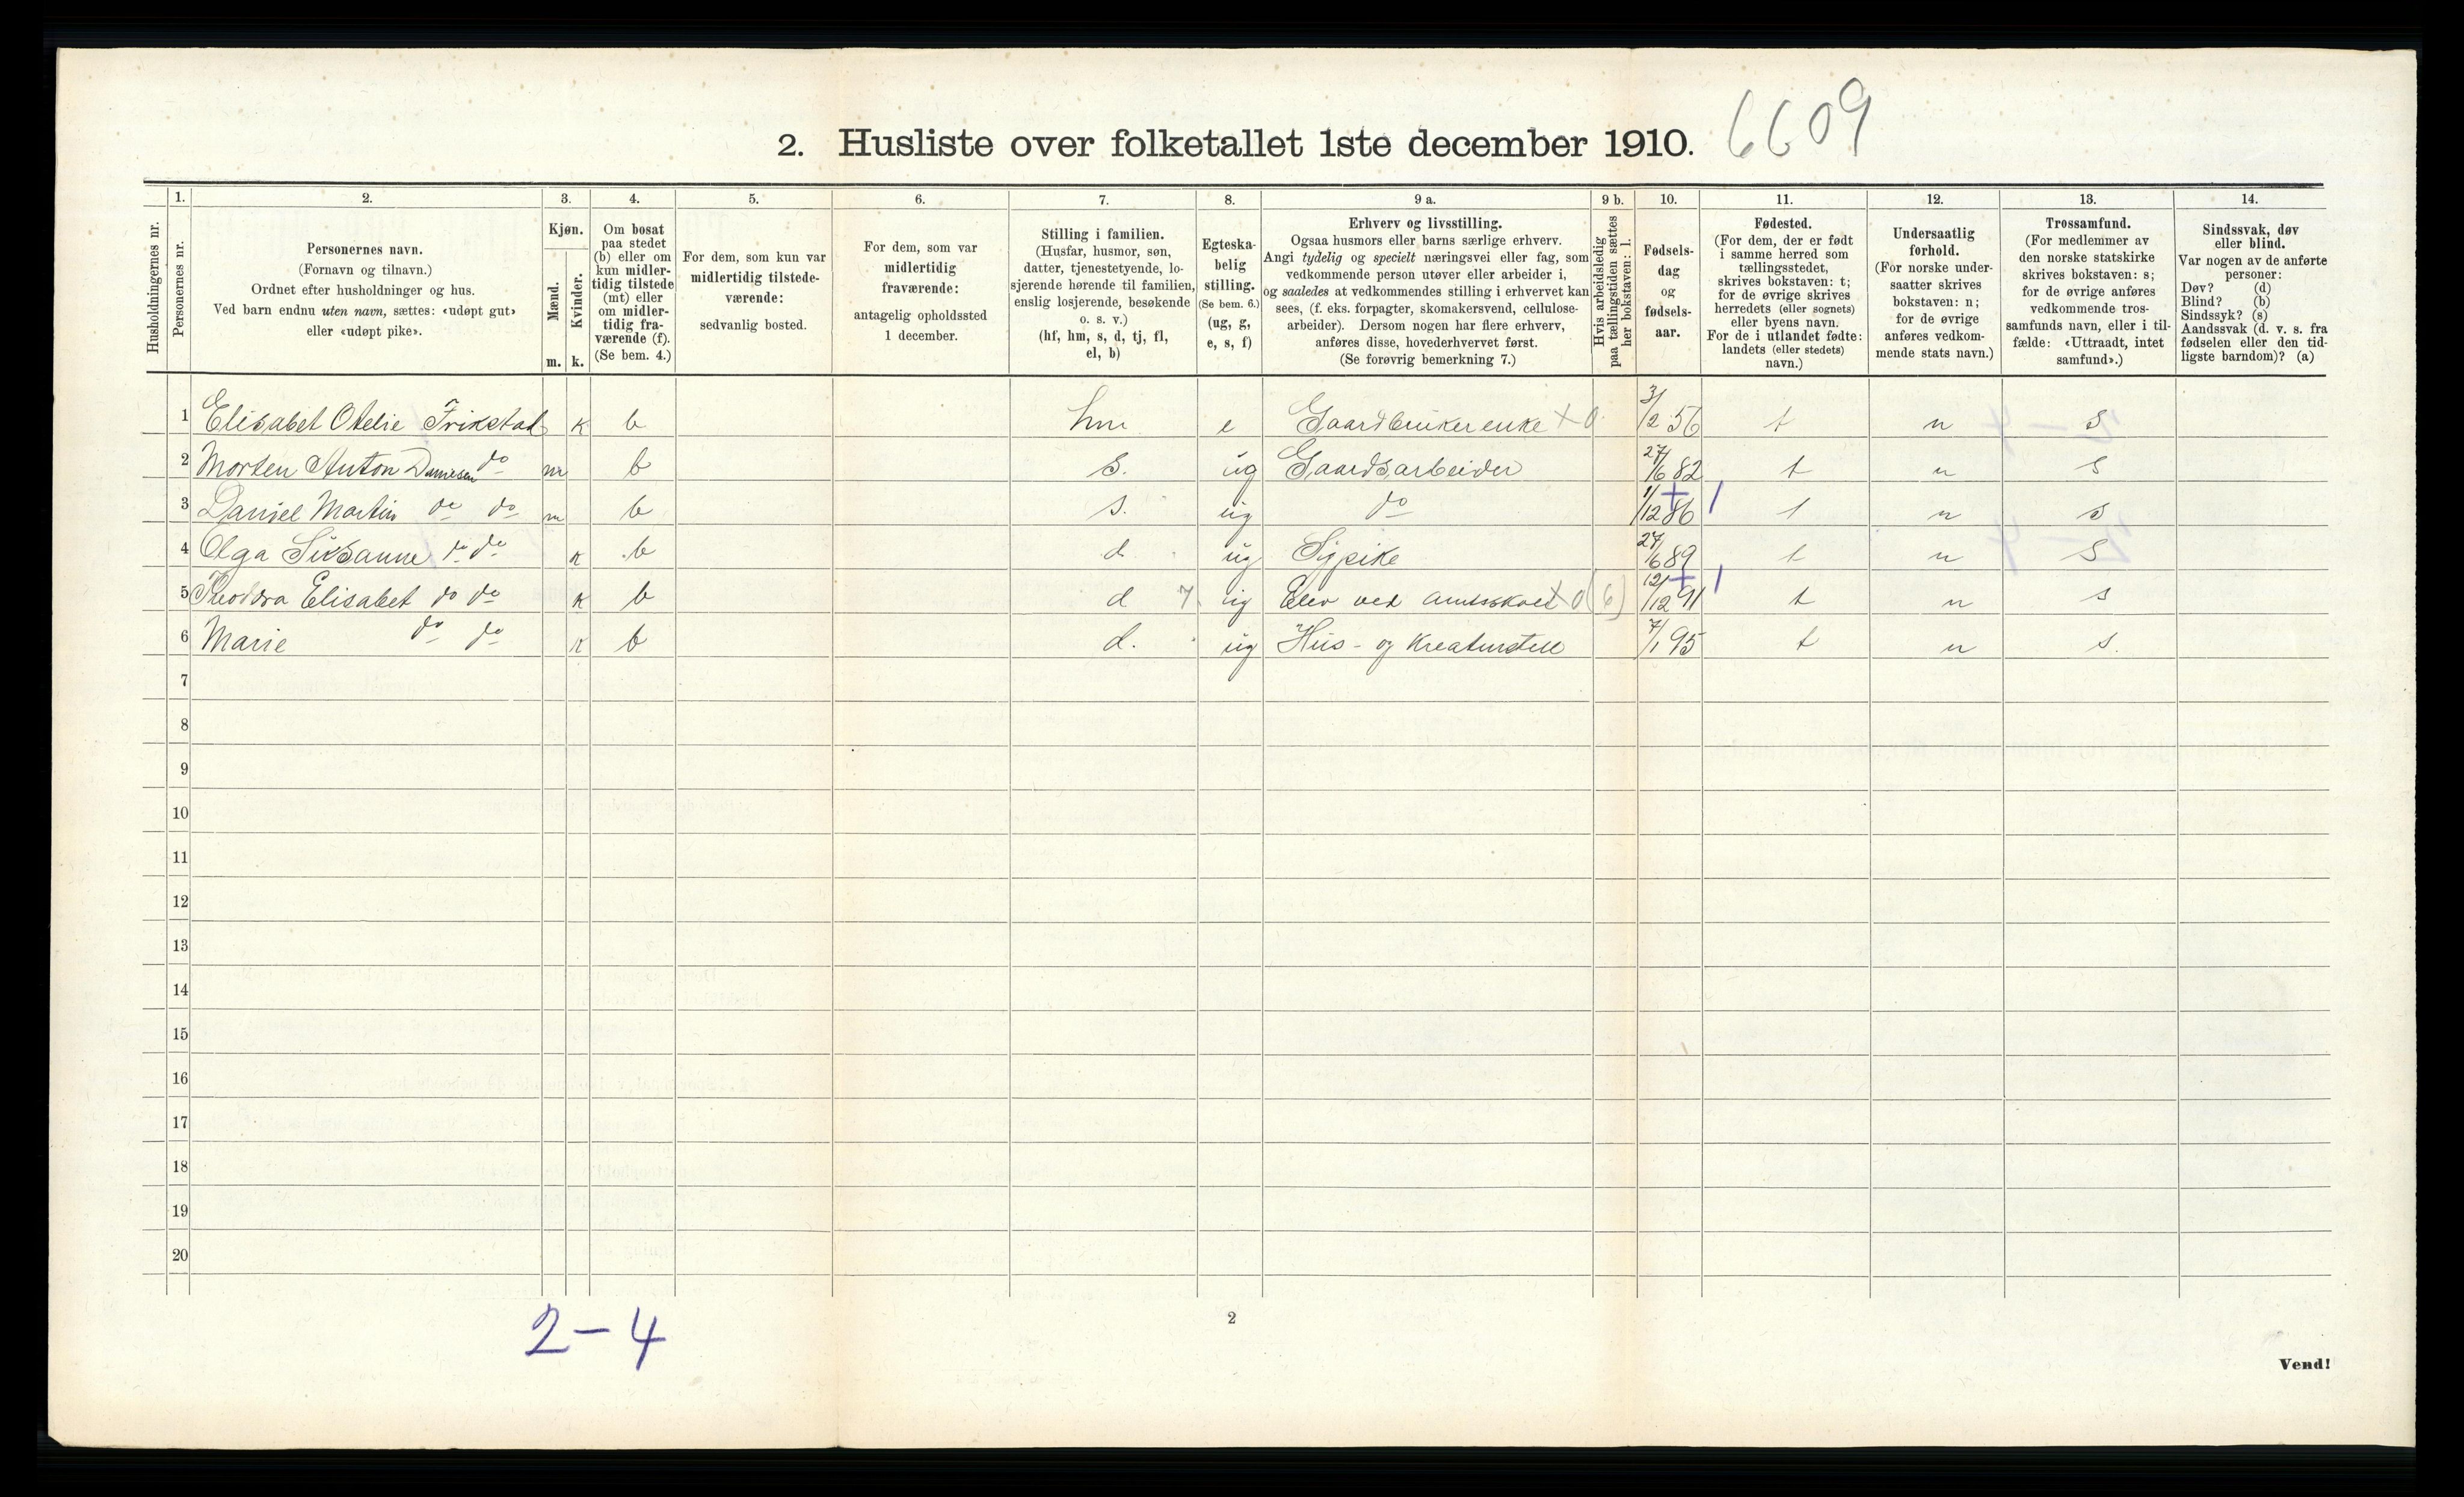 2. Husliste over folketallet 1ste december 1910. 6609
Husholdningernes nr.
1. Personernes nr.
2. Personernes navn. (Fornavn og tilnavn.) Ordnet efter husholdninger og hus. Ved barn endnu uten navn, sættes: «udøpt gut» eller «udøpt pike».
3. Kjøn. Mænd. m. Kvinder. k.
4. Om bosat paa stedet (b) eller om kun midlertidig tilstede (mt) eller om midlertidig fraværende (f). (Se bem. 4.)
5. For dem, som kun var midlertidig tilstedeværende: sedvanlig bosted.
6. For dem, som var midlertidig fraværende: antagelig opholdssted 1 december.
7. Stilling i familien. (Husfar, husmor, søn, datter, tjenestetyende, losjerende hørende til familien, enslig losjerende, besøkende o. s. v.) (hf, hm, s, d, tj, fl, el, b)
8. Egteskabelig stilling. (Se bem. 6.) (ug, g, e, s, f)
9 a. Erhverv og livsstilling. Ogsaa husmors eller barns særlige erhverv. Angi tydelig og specielt næringsvei eller fag, som vedkommende person utøver eller arbeider i, og saaledes at vedkommendes stilling i erhvervet kan sees, (f. eks. forpagter, skomakersvend, cellulosearbeider). Dersom nogen har flere erhverv, anføres disse, hovederhvervet først. (Se forøvrig bemerkning 7.)
9 b. Hvis arbeidsledig paa tællingstiden sættes her bokstaven: l.
10. Fødselsdag og fødselsaar.
11. Fødested. (For dem, der er født i samme herred som tællingsstedet, skrives bokstaven: t; for de øvrige skrives herredets (eller sognets) eller byens navn. For de i utlandet fødte: landets (eller stedets) navn.)
12. Undersaatlig forhold. (For norske undersaatter skrives bokstaven: n; for de øvrige anføres vedkommende stats navn.)
13. Trossamfund. (For medlemmer av den norske statskirke skrives bokstaven: s; for de øvrige anføres vedkommende trossamfunds navn, eller i tilfælde: «Uttraadt, intet samfund».)
14. Sindssvak, døv eller blind. Var nogen av de anførte personer: Døv? (d) Blind? (b) Sindssyk? (s) Aandssvak (d. v. s. fra fødselen eller den tidligste barndom)? (a)
1 Elisabet Otelie Frikstad k b hm e Gaardbrukerenke x 0 3/2 56 t n s
2 Morten Anton Danielsen do m b s. ug Gaardsarbeider 27/6 82 t n s
3 Daniel Martin do do m b s. ug do 1/12 86 t n s
4 Olga Susanne do do k b d ug Sypike 27/6 89 t n s
5 Theodora Elisabet do do k b d 7 ug Elev ved Amtsskole x 0 (6) 12/12 91 t n s
6 Marie do do k b d. ug Hus- og Kreaturstell 7/1 95 t n s.
7
8
9
10
11
12
13
14
15
16
17
18
19
20
2-4
2
Vend!